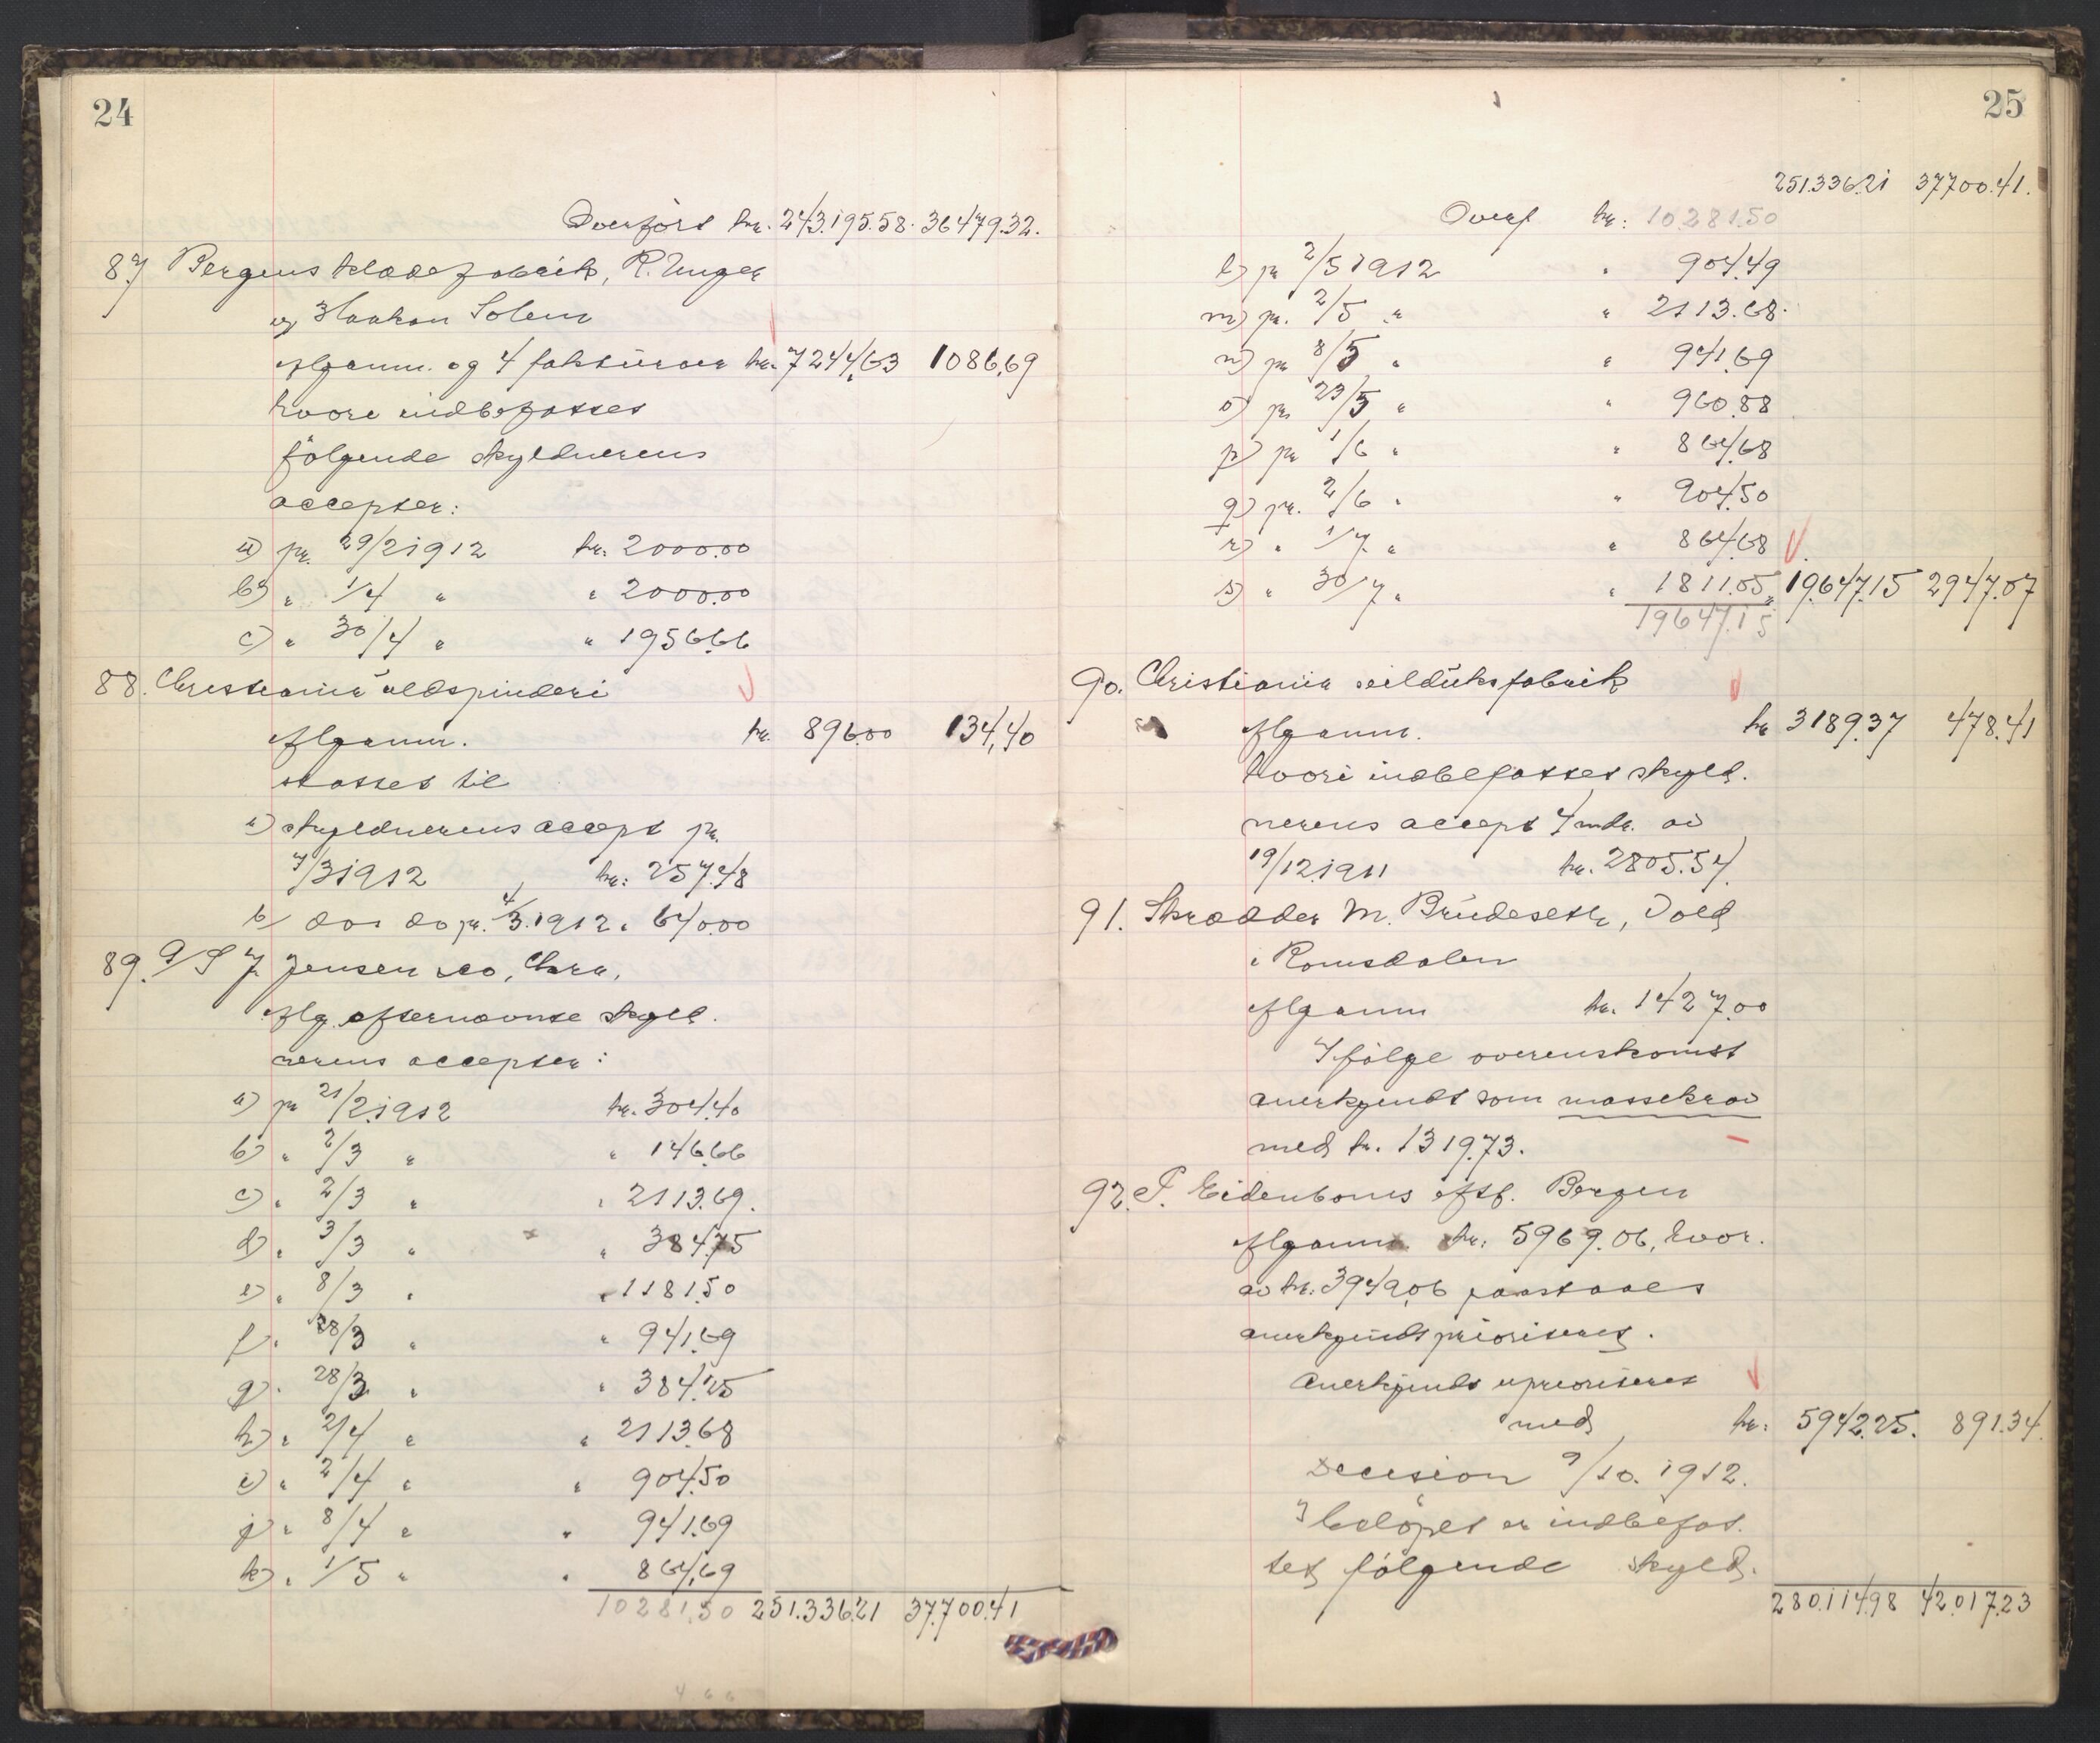 24
Overført kr. 243.195.58. 36479.32.
87 Bergens klædefabrik, R. Unger
og Haakon Solem
Ifl. anm. og 4 fakturaer kr. 7244.63 1086.69
hvori indbefattes
følgende skyldnerens
accepter:
a) pr. 29/2 1912 kr. 2000.00
b) " 1/4 " " 2000.00
c) " 30/4 " " 1956.66
88. Christiania uldspinderi
Ifl. anm. kr. 896.00 134,40
støttes til
a) skyldnerens accept pr.
7/3 1912 kr: 257.48
b) do. do pr. 4/3. 1912 " 640.00
89. A/S J. Jensen & Co, Chra,
Ifl. efternævnte skyld-
nerens accepter:
a) pr 21/2 1912 kr. 304.40
b) " 2/3 " " 146.66
c) " 2/3 " " 2113.69.
d) " 3/3 " " 384.75
e) " 8/3 " " 1181.50
f) " 28/3 " " 941.69
g) " 28/3 " " 384.25
h) " 2/4 " " 2113.68
i) " 2/4 " " 904.50
j) " 8/4 " " 941.69
k) " 1/5 " " 864.69
10281.50 251.336.21 37.700.41
25
251.336.21 37700.41.
Overf kr: 10.281.50
l) pr 2/5 1912 " 904.49
m) pr. 2/5 " " 2113.68.
n) pr 8/5 " " 941.69
o) pr 23/5 " " 960.88
p) pr 1/6 " " 864.68
q) pr. 2/6 " " 904.50
r) " 1/7 " " 864.68
s) " 30/7 " " 1811.05 " 19.647.15 2947.07
19647.15
90. Christiania seildüksfabrik
Ifl. anm. kr 3189.37 478.41
hvori indbefattes skyld-
nerens accept 4 mdr. av
19/12 1911 kr. 2805.54
91. Skrædder M. Brüdeseth, Vold
i Romsdalen
Ifl. anm kr. 1427.00
Ifølge overenskomst
anerkjendt som massekrav
med kr. 1319.73.
92. P. Eidenboms eftf. Bergen
Ifl. anm. kr: 5969.06, hvor-
av kr. 3949.06 paastaaes
anerkjendt prioriteret.
Anerkjendt uprioriteret
med kr: 5942.25. 891.34
Decision 9/10. 1912.
I beløpet er indbefat-
tet følgende skyld-
280.114.98 42.017.23